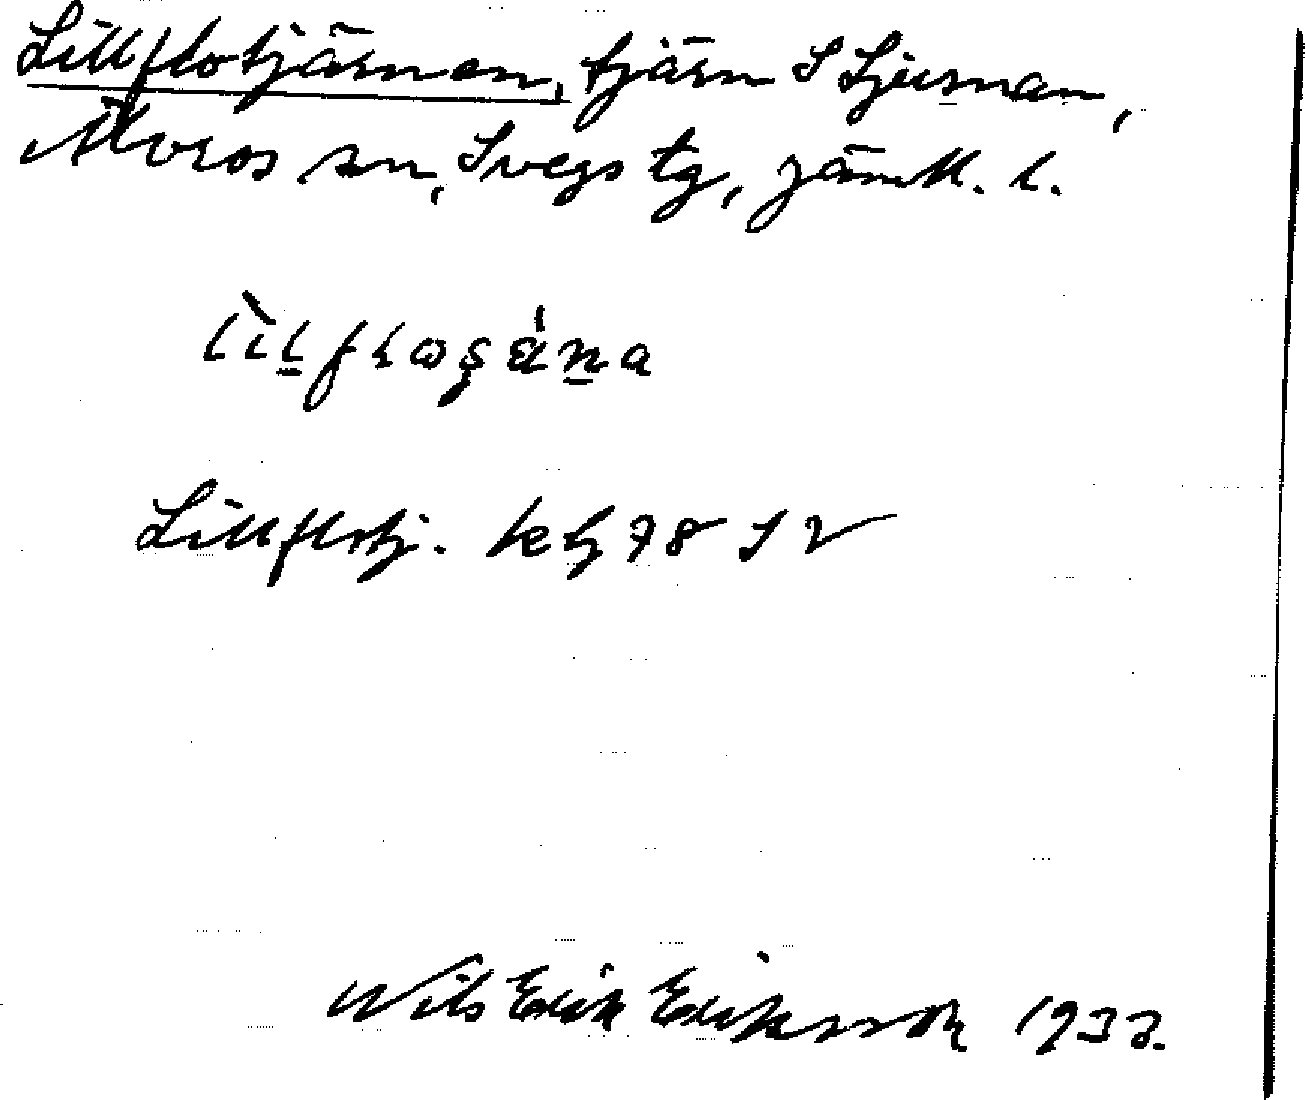 Lillflotjärnen, tjärn S Ljusnan,
Älvros sn, Svegs tg, Jämtl. l.
Lillflotj. kbl 78 SV
Nils Erik Eriksson 1933.